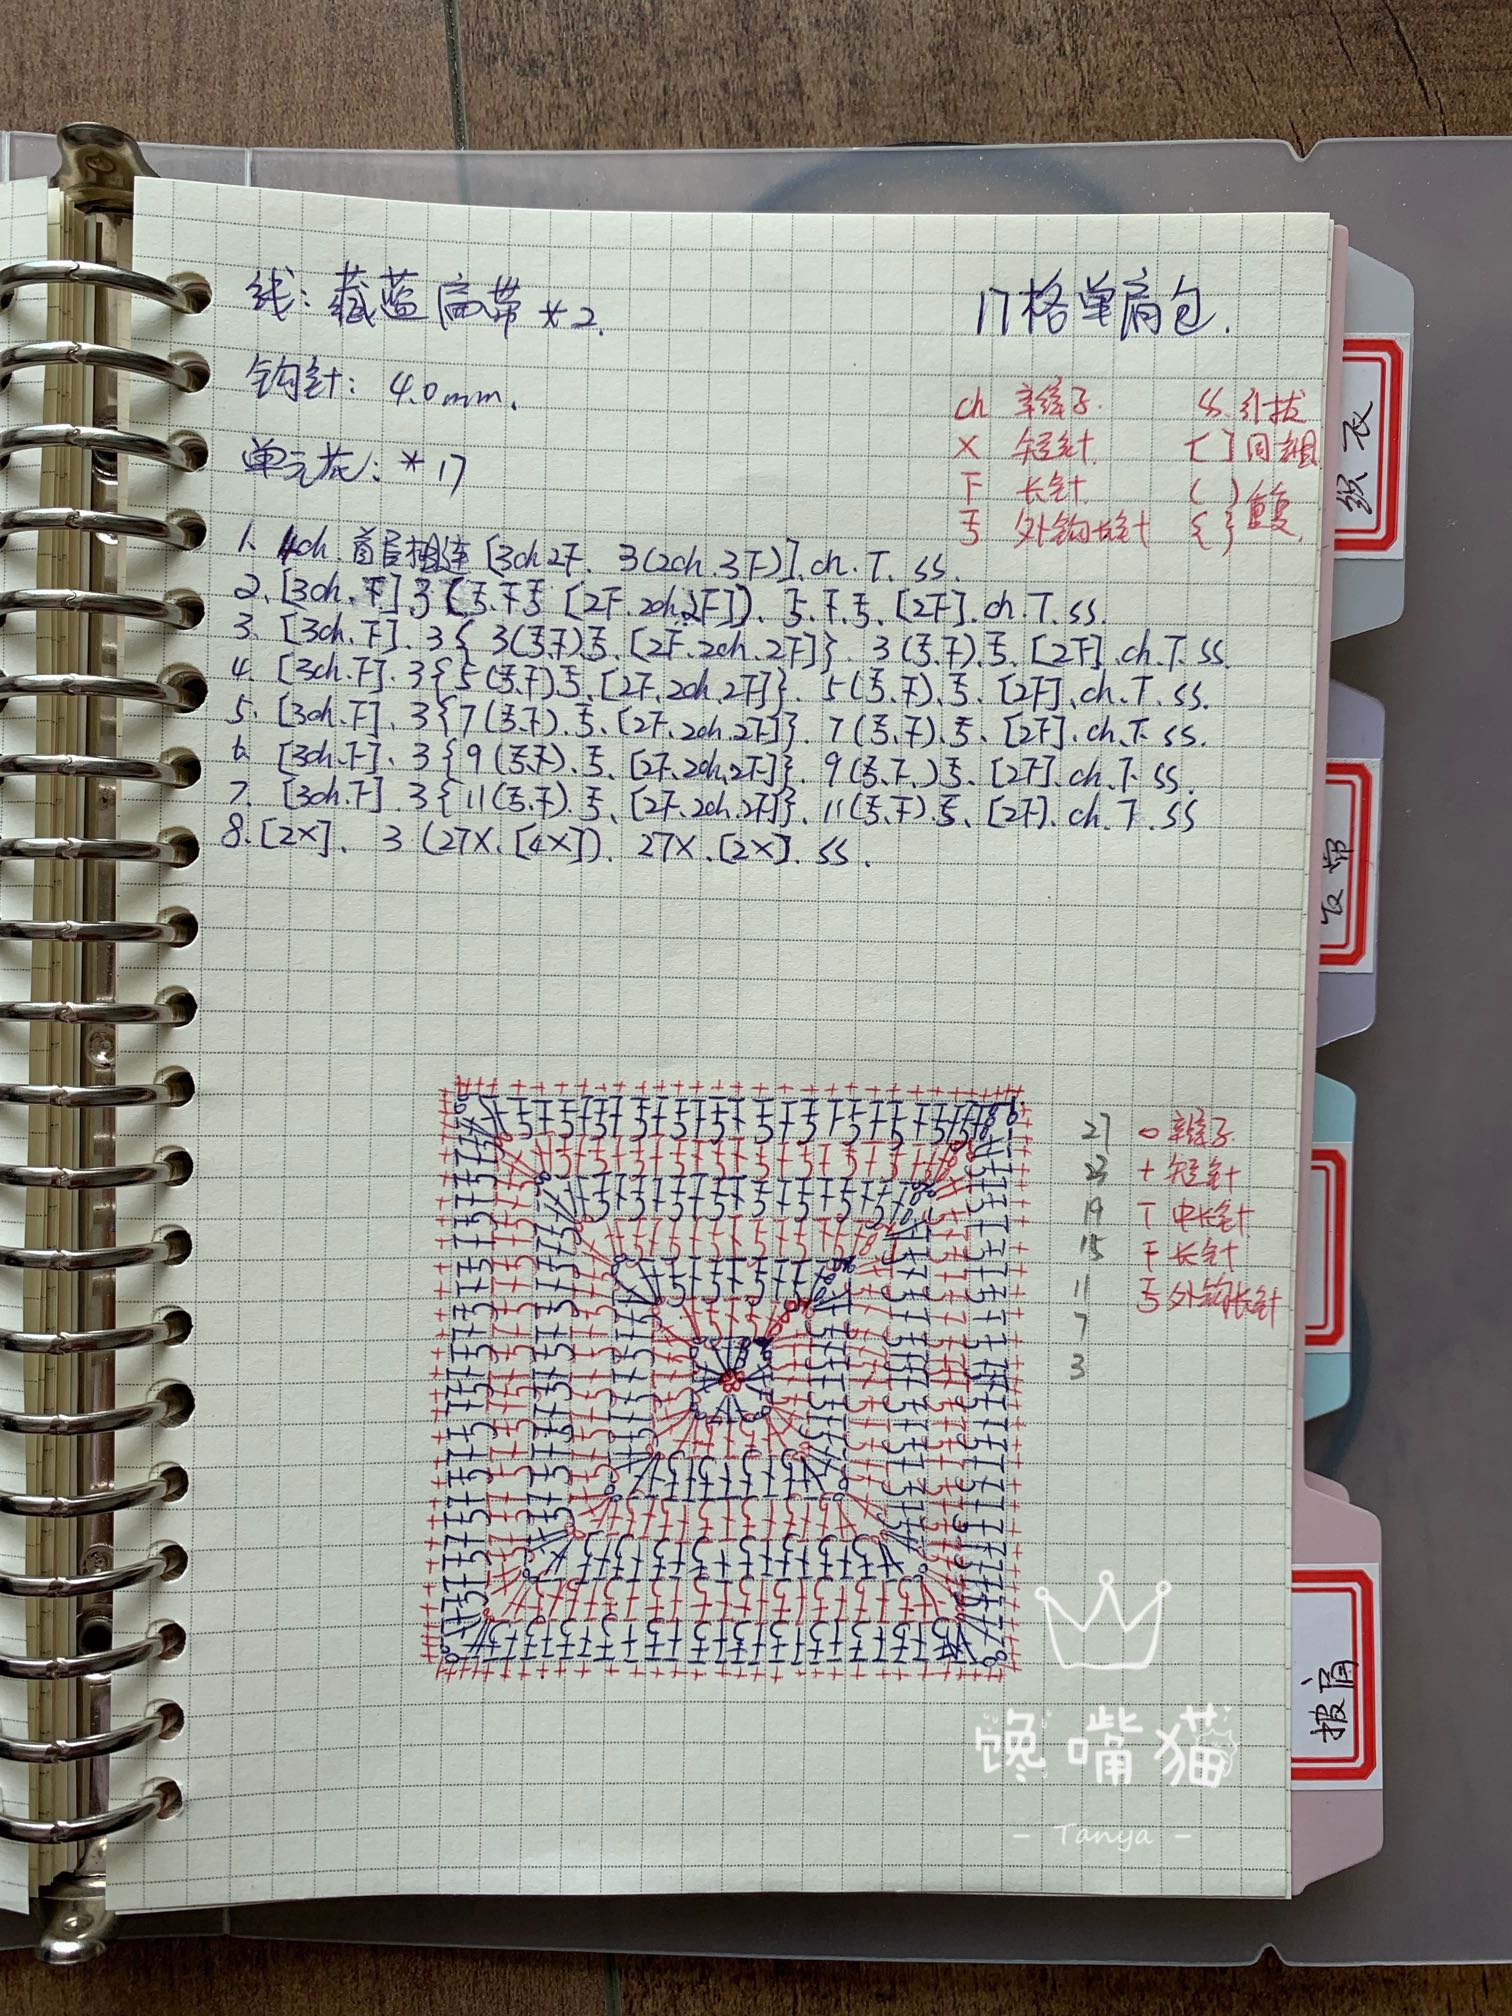 线：藏蓝扁带*2.
17格单肩包.
钩针：4.0mm.
单元花：*17
ch 辫子. SS 引拔
X 短针 [ ] 同一组
下 长针 ( ) { } 重复
㇉ 外钩长针
1、4ch 首尾相连 [3ch 2下. 3(2ch.3下)]. ch. T. SS.
2、[3ch.下] 3(㇉.下㇉ [2下.2ch.2下]). ㇉.下.㇉. [2下]. ch. T. SS.
3. [3ch.下]. 3{ 3(㇉.下)㇉. [2下.2ch.2下]}. 3(㇉.下).㇉. [2下]. ch. T. SS.
4. [3ch.下]. 3{5(㇉.下).㇉. [2下.2ch.2下]}. 5(㇉.下).㇉. [2下]. ch. T. SS.
5、[3ch.下]. 3{7(㇉.下).㇉. [2下.2ch.2下]}. 7(㇉.下).㇉. [2下]. ch. T. SS.
6. [3ch.下]. 3{9(㇉.下).㇉. [2下.2ch.2下]}. 9(㇉.下.)㇉. [2下]. ch. T. SS.
7. [3ch.下]. 3{11(㇉.下).㇉. [2下.2ch.2下]}. 11(㇉.下).㇉. [2下]. ch. T. SS
8.[2X]. 3(27X.[4X]). 27X.[2X]. SS.
27 ○ 辫子.
23 + 短针
19 T 中长针
15 下 长针
11 ㇉ 外钩长针
7
3
织衣
披肩
馋嘴猫
- Tanya -